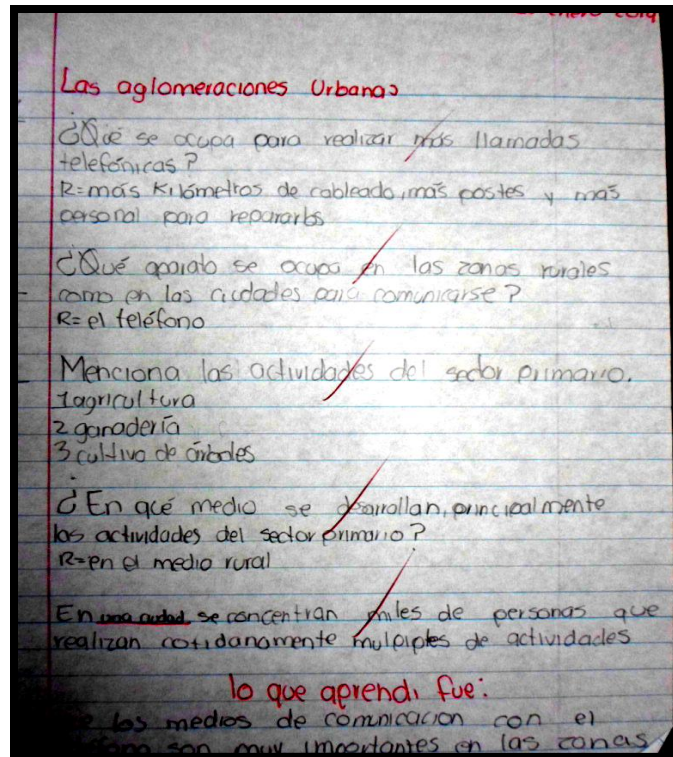 enero
Las aglomeraciones Urbanas
¿Qué se ocupa para realizar más llamadas
telefónicas?
R=más Kilómetros de cableado, más postes y más
personal para repararlos
¿Qué aparato se ocupa en las zonas rurales
como en las ciudades para comunicarse?
R=el teléfono
Menciona las actividades del sector primario.
1 agricultura
2 ganadería
3 cultivo de árboles
¿En qué medio se desarrollan, principalmente
las actividades del sector primario?
R=en el medio rural
En una ciudad se concentran miles de personas que
realizan cotidanamente multiples de actividades
lo que aprendi fue:
los medios de comnicacion con el
son muy importantes en las zonas